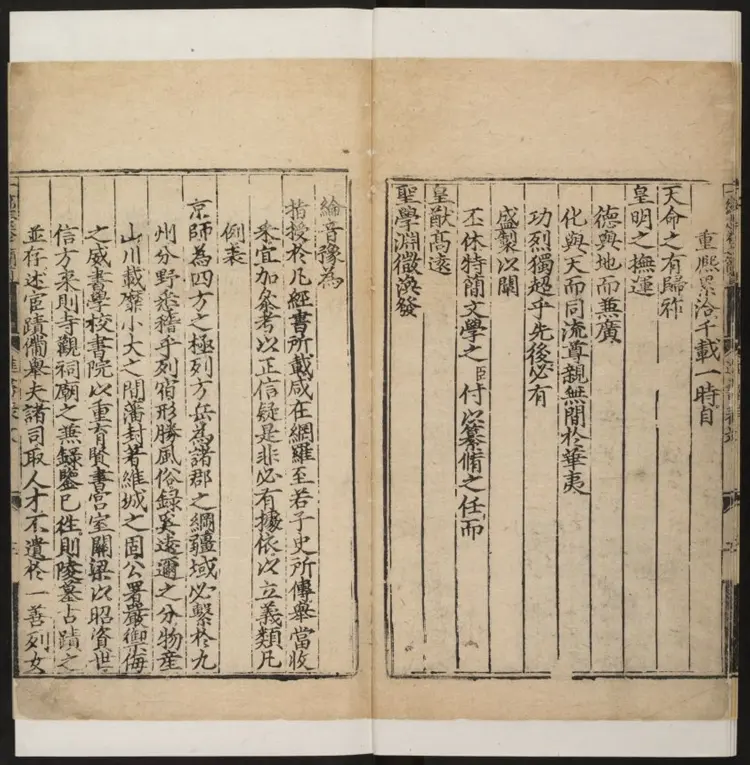 重熈累洽千載一時自
天命之有歸祚
皇明之撫運
德與地而兼廣
化與天而同流尊親無間於華夷
功烈獨超乎先後必有
盛製以闡
丕休特簡文學之臣付以纂脩之任而
皇猷髙遠
聖學淵微渙發
綸音豫為
指授於凡經書所載咸在網羅至若子史所傳舉當收
采宜加叅考以正信疑是非必有據依以立義類凡
例
京師為四方之極列方岳為諸郡之綱疆域必繫於九
州分野悉稽乎列宿形勝風俗録奚遠邇之分物産
山川載靡小大之間藩封著維城之固公署嚴禦侮
之威書學校書院以重育賢書宫室關梁以昭資世
信方来則寺觀祠廟之兼録鑒已徃則陵墓古蹟之
並存述宦蹟備舉夫諸司取人才不遺於一善列女